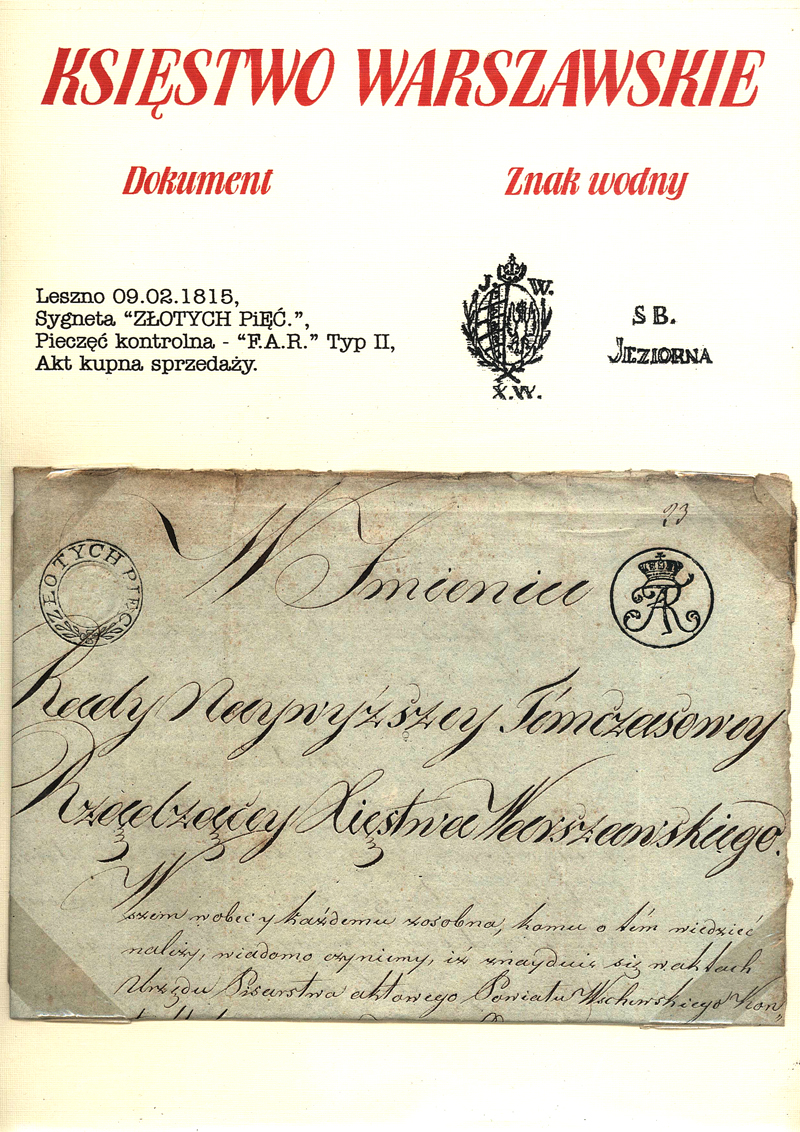 KSIĘSTWO WARSZAWSKIE
Dokument
Znak wodny
Leszno 09.02.1815,
Sygneta “ZŁOTYCH PiĘĆ.”,
Pieczęć kontrolna - “F.A.R.” Typ II,
Akt kupna sprzedaży.
J. W.
X. W.
S B.
JEZIORNA
23
ZŁOTYCH PIĘĆ
W Imieniu
Rady Naywyższey Tymczasowey
Rządzącey Xięstwa Warszawskiego.
Wszem wobec y każdemu zosobna, komu o tém wiedzieć
należy, wiadomo czyniemy, iż znayduie się w aktach
Urzędu Pisarstwa aktowego Powiatu Wschowskiego Kon„